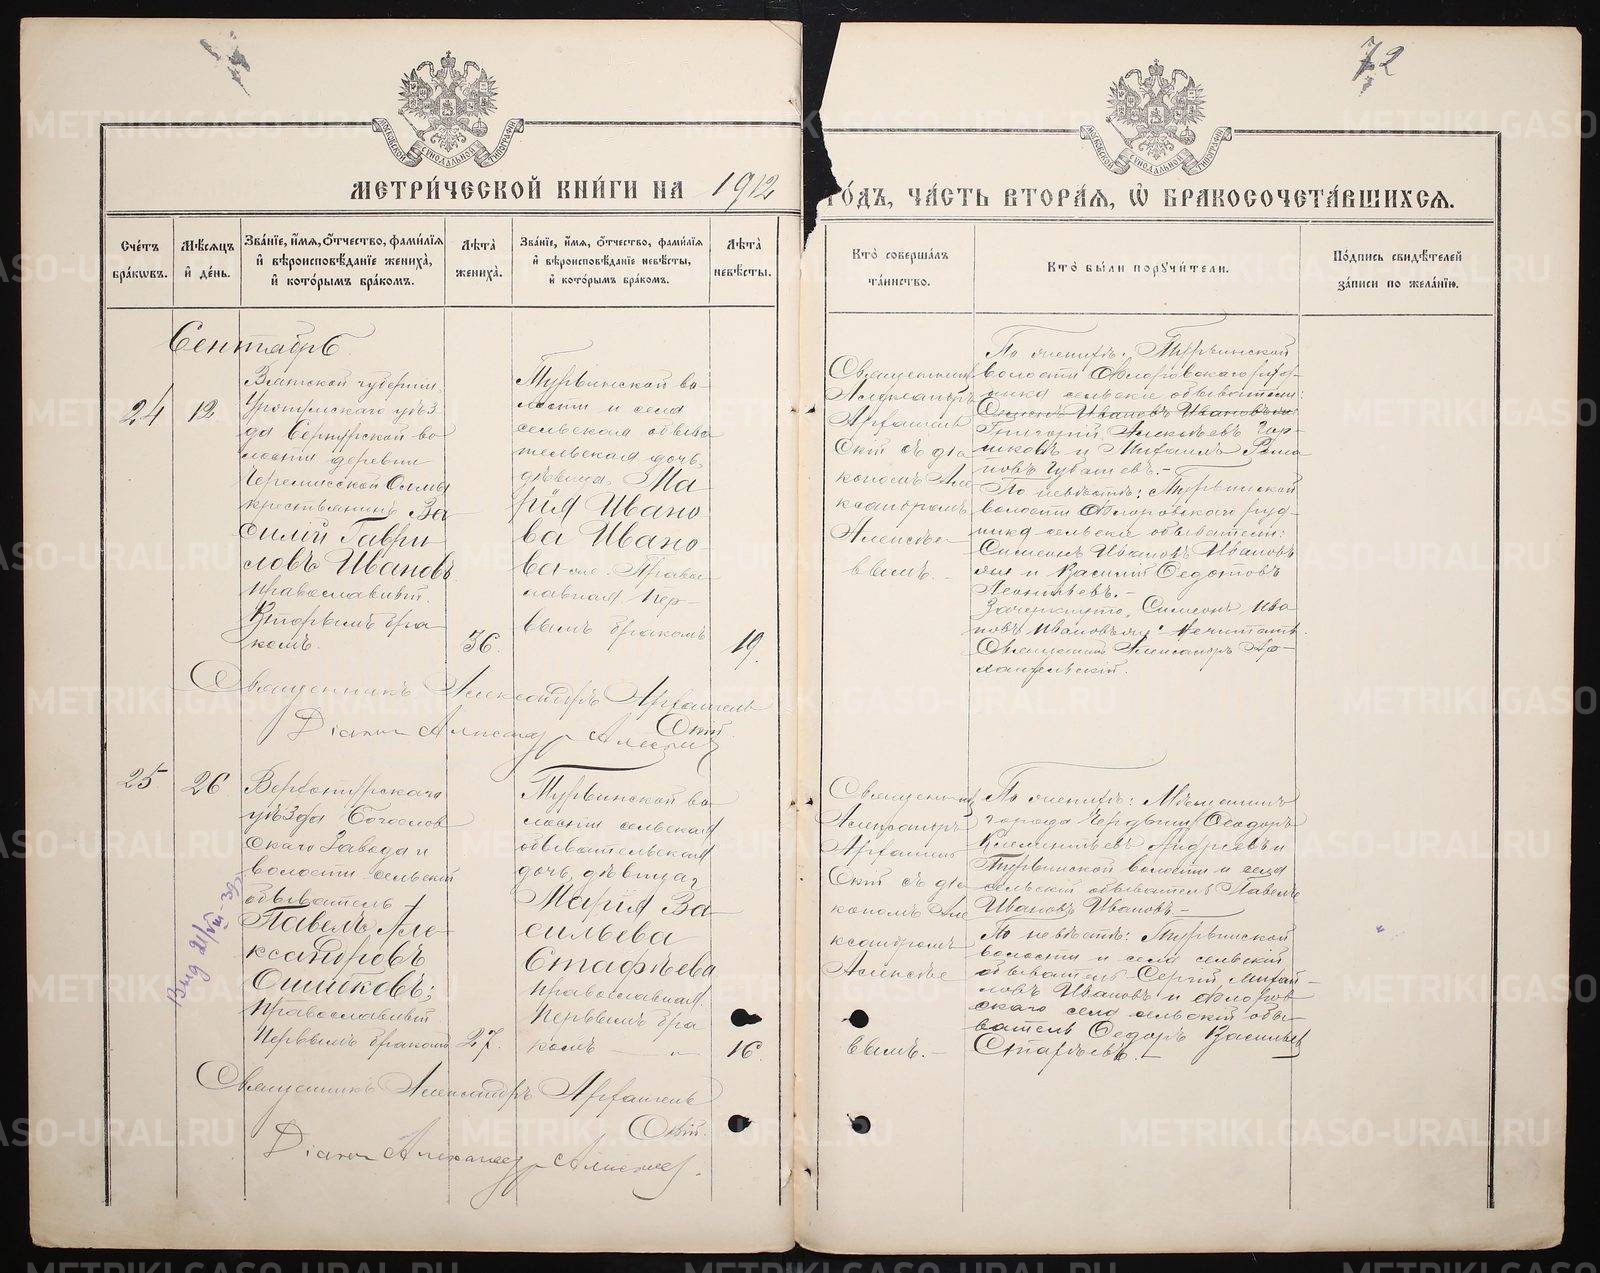 72
МОСКОВСКОЙ СѴНОДАЛЬНОЙ ТИПОГРАФІИ
МОСКОВСКОЙ СѴНОДАЛЬНОЙ ТИПОГРАФІИ
МЕТРИ́ЧЕСКОЙ КНИ́ГИ НА 1912
ГО́ДЪ, ЧА́СТЬ ВТОРА́Я, Ѡ҆ БРАКОСОЧЕТА́ВШИХСЯ.
Сче́тъ
бра́кωвъ.
Мѣ́сяцъ
и҆ де́нь.
Зва́нїе, и҆́мя, ѻ҆́тчество, фамѝлїя
и҆ вѣроисповѣ́данїе жениха̀,
и҆ кото́рымъ бра́комъ.
Лѣ́та
жениха̀.
Зва́нїе, и҆́мя, ѻ҆́тчество, фамѝлїя
и҆ вѣроисповѣ́данїе невѣ́сты,
и҆ кото́рымъ бра́комъ.
Лѣ́та
невѣ́сты.
Кто̀ соверша́лъ
та́инство.
Кто̀ бы́ли поручи́тели.
По́дпись свидѣ́телей
за́писи по жела́нїю.
Сентябрь
24
12
Вятской губерніи
Уржумскаго уѣз-
да Сернурской во-
лости деревни
Черемисской
крестьянинъ Ва-
силій Гаври-
ловъ Ивановъ
православный.
Вторымъ бра-
комъ.
36.
Турьинской во-
лости и села
сельскаго обыва-
тельская дочь,
дѣвица, Ма-
рія Ивано-
ва Ивано-
ва Право-
славная пер-
вымъ бракомъ
19.
Священникъ
Александръ
Архангель
скій съ діа
кономъ Але
ксандромъ
Алексѣе-
вымъ.
По женихѣ: Турьинской
волости Фроловскаго руд-
ника сельскіе обыватели:
Симеонъ Ивановъ Ивановъ
Григорій Алексѣевъ
и Михаилъ Рома
новъ
По невѣстѣ: Турьинской
волости Фроловскаго руд-
ника сельскіе обыватели:
Симеонъ Ивановъ Ивановъ
и Василій Федотовъ
Леонтьевъ.
Зачеркнуто „Симеонъ Ива
новъ не читать.
Священникъ Александръ Ар-
хангельскій.
Священникъ Александръ Архангель
скій
Діаконъ Александръ Алексѣевъ
25
26
Верхотурскаго
уѣзда Богослов
скаго Завода и
волости сельскій
обыватель
Павелъ Але-
ксандровъ
Ошитковъ;
православный
первымъ бракомъ
27.
Турьинской во-
лости сельскаго
обывательская
дочь, дѣвица,
Марія Ва-
сильева
Стафѣева
православная.
Первымъ бра
комъ
16.
Священникъ
Александръ
Архангель
скій съ діа
кономъ Але
ксандромъ
Алексѣе
вымъ.
По женихѣ: Мѣщанинъ
города Чердыни Феодоръ
Климентьевъ Андреевъ и
Турьинской волости и села
сельскій обыватель Павелъ
Ивановъ Ивановъ.
По невѣстѣ: Турьинской
волости и села сельскій
обыватель Сергій Михай-
ловъ Ивановъ и Фролов-
скаго села сельскій обы-
ватель Федоръ Васильев
Стафѣевъ.
Священникъ Александръ Архангель
скій.
Діаконъ Александръ Алексѣевъ.
METRIKI.GASO-URAL.RU